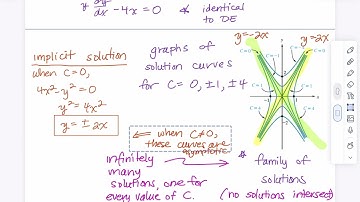 y dy/dx - 4x = 0 & identical
to DE
implicit solution
when C=0,
4x² - y² = 0
y² = 4x²
y = ± 2x
graphs of
solution curves
for C = 0, ±1, ±4
y=-2x
y=2x
⇐ when C≠0,
these curves are
asymptotic
infinitely
many
solutions, one for
every value of C.
* family of
solutions
(no solutions intersect)